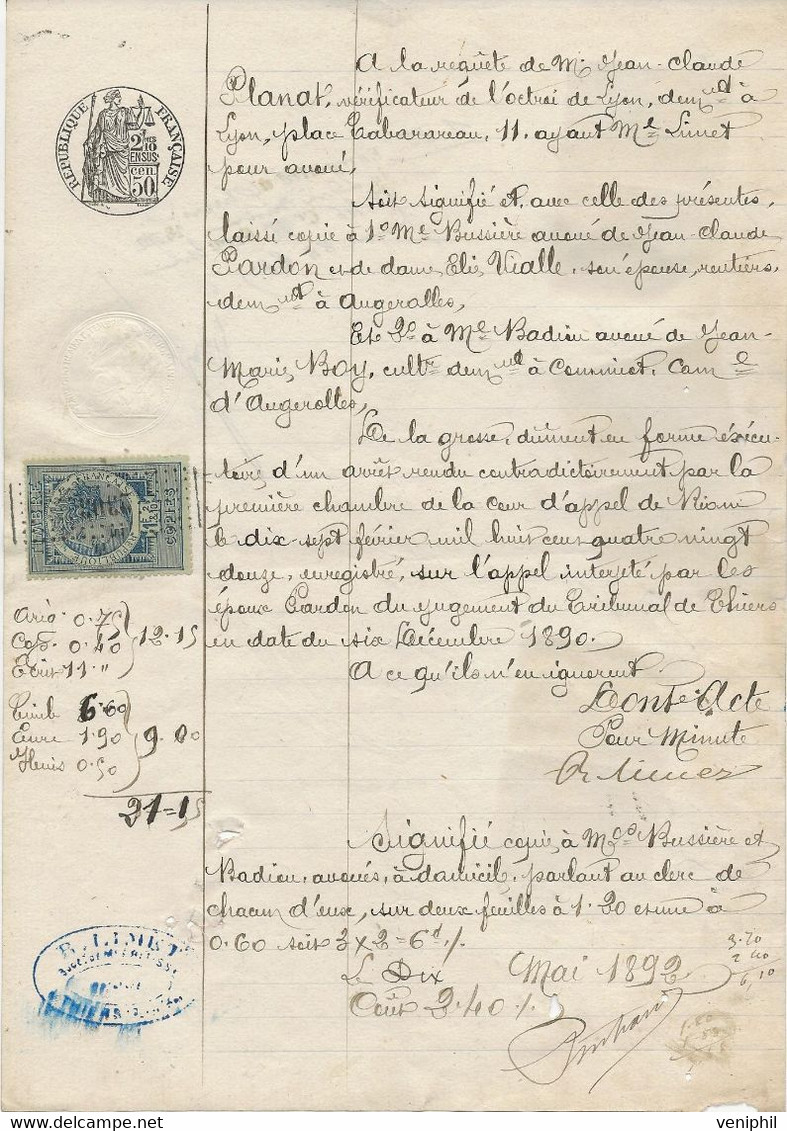 A la requête de Mr Jean-Claude
Planat, vérificateur de l'octroi de Lyon, demt à
Lyon, place Tabarareau, 11, ayant Me Limet
pour avoué,
Soit signifié et, avec celle des présentes,
laissé copie à 1o Me Bussière avoué de Jean-Claude
Pardon et de dame Elis Vialle, son épouse, rentiers,
demt à Augerolles,
Et 2o à Me Badiou avoué de Jean-
Marie Boy, cultr demt à Comme
d'Augerolles,
De la grosse, dûment en forme exécu-
toire, d'un arrêt rendu contradictoirement par la
première chambre de la cour d'appel de Riom
le dix-sept février mil huit cent quatre vingt
douze, enregistré, sur l'appel interjeté par les
époux Pardon du jugement du Tribunal de Thiers
en date du six Décembre 1890.
A ce qu'ils n'en ignorent.
Dont Acte
Pour Minute
R Limet
Signifié copie, à Mes Bussière et
Badiou, avoués, à domicile, parlant au clerc de
chacun d'eux, sur deux feuilles à 1.20 et une à
0.60 soit 3 x 2 = 6f./.
Le Dix Mai 1892
Coût 2.40 ./.
3.70
2.40
6,10
RÉPUBLIQUE FRANÇAISE
2/10
EN SUS
50 cen
TIMBRE
COPIES
0.75
Cop. 0.40
Ecrit 11 "
12.15
Timb 6.60
Enre 1.90
0.50
9.00
21=15
R. LIMET
THIERS
veniphil